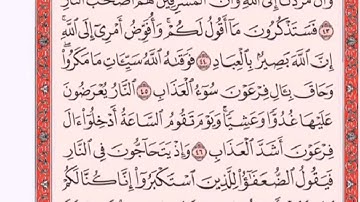 وَأَنَّ مَرَدَّنَا إِلَى ٱللَّهِ وَأَنَّ ٱلْمُسْرِفِينَ هُمْ أَصْحَٰبُ ٱلنَّارِ
٤٣ فَسَتَذْكُرُونَ مَآ أَقُولُ لَكُمْ ۚ وَأُفَوِّضُ أَمْرِىٓ إِلَى ٱللَّهِ ۚ
إِنَّ ٱللَّهَ بَصِيرٌۢ بِٱلْعِبَادِ ٤٤ فَوَقَىٰهُ ٱللَّهُ سَيِّـَٔاتِ مَا مَكَرُوا۟ ۖ
وَحَاقَ بِـَٔالِ فِرْعَوْنَ سُوٓءُ ٱلْعَذَابِ ٤٥ ٱلنَّارُ يُعْرَضُونَ
عَلَيْهَا غُدُوًّا وَعَشِيًّا ۖ وَيَوْمَ تَقُومُ ٱلسَّاعَةُ أَدْخِلُوٓا۟ ءَالَ
فِرْعَوْنَ أَشَدَّ ٱلْعَذَابِ ٤٦ وَإِذْ يَتَحَآجُّونَ فِى ٱلنَّارِ
فَيَقُولُ ٱلضُّعَفَٰٓؤُا۟ لِلَّذِينَ ٱسْتَكْبَرُوٓا۟ إِنَّا كُنَّا لَكُمْ